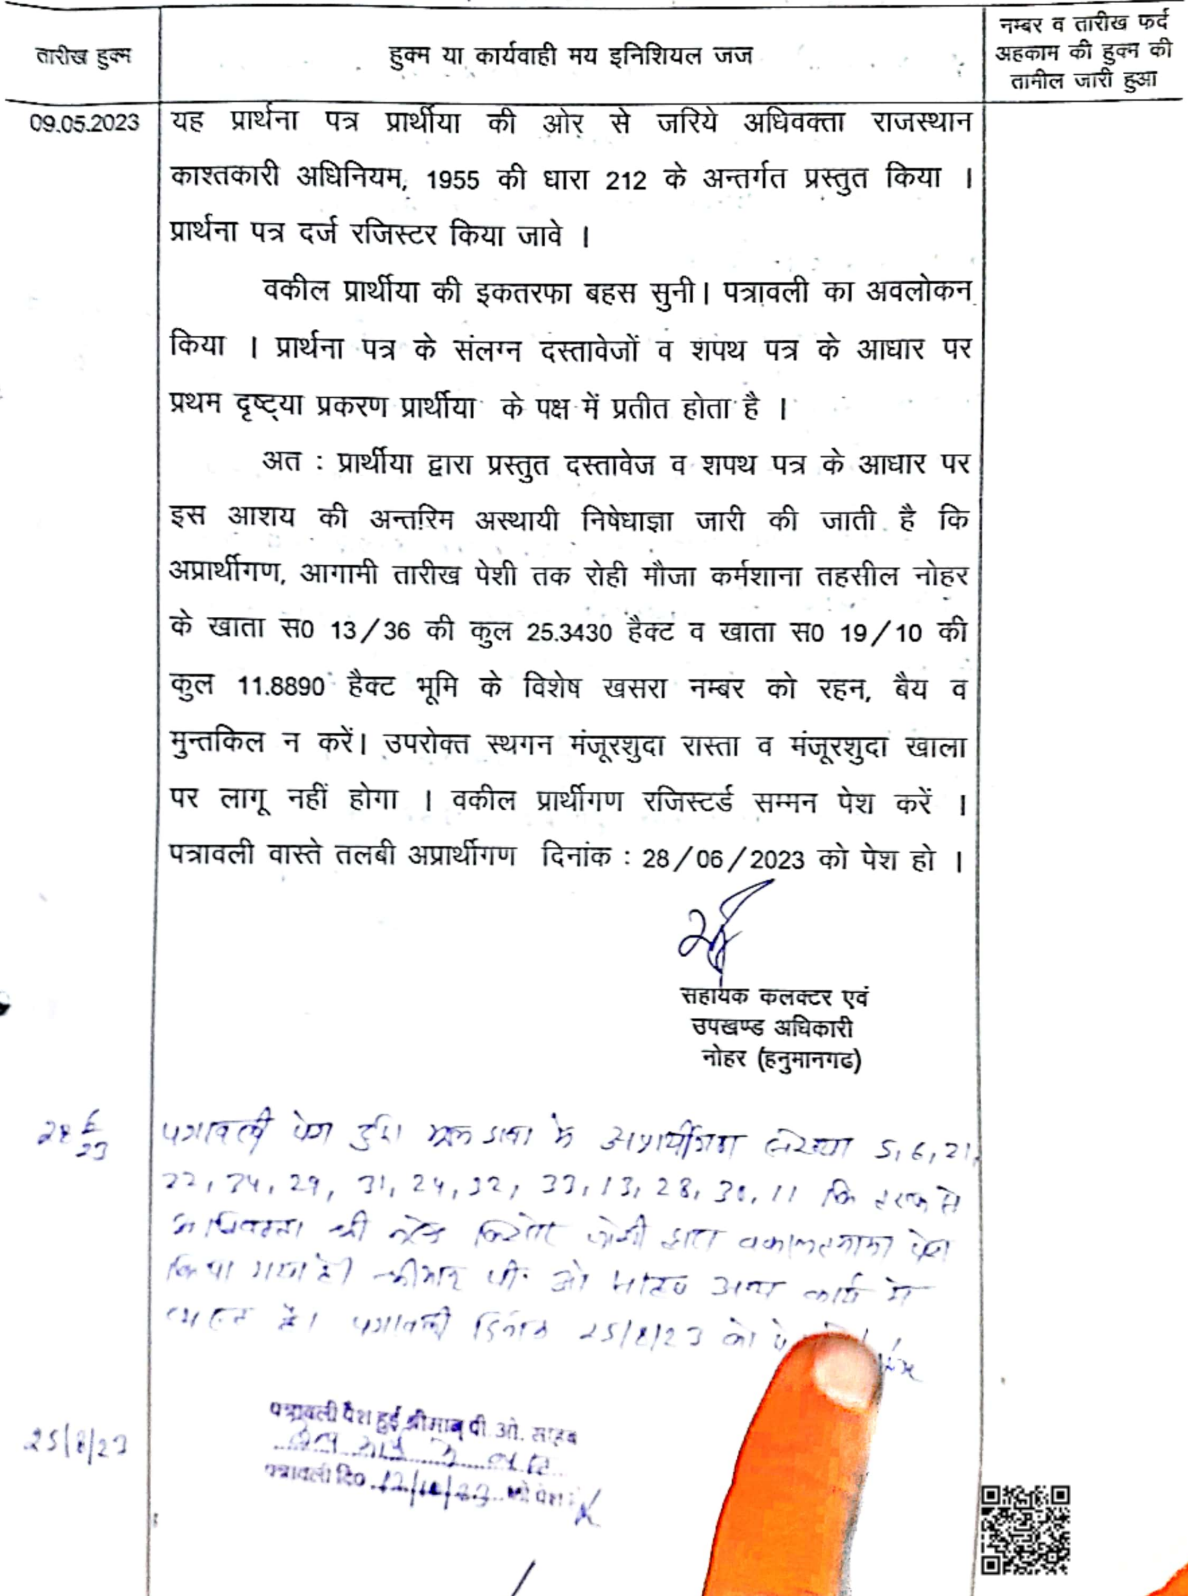 तारीख हुक्म
हुक्म या कार्यवाही मय इनिशियल जज
नम्बर व तारीख फर्द
अहकाम की हुक्म की
तामील जारी हुआ
09.05.2023
यह प्रार्थना पत्र प्रार्थीया की ओर से जरिये अधिवक्ता राजस्थान
काश्तकारी अधिनियम, 1955 की धारा 212 के अन्तर्गत प्रस्तुत किया ।
प्रार्थना पत्र दर्ज रजिस्टर किया जावे ।
वकील प्रार्थीया की इकतरफा बहस सुनी। पत्रावली का अवलोकन
किया । प्रार्थना पत्र के संलग्न दस्तावेजों व शपथ पत्र के आधार पर
प्रथम दृष्ट्या प्रकरण प्रार्थीया के पक्ष में प्रतीत होता है ।
अत : प्रार्थीया द्वारा प्रस्तुत दस्तावेज व शपथ पत्र के आधार पर
इस आशय की अन्तरिम अस्थायी निषेधाज्ञा जारी की जाती है कि
अप्रार्थीगण, आगामी तारीख पेशी तक रोही मौजा कर्मशाना तहसील नोहर
के खाता स0 13/36 की कुल 25.3430 हैक्ट व खाता स0 19/10 की
कुल 11.8890 हैक्ट भूमि के विशेष खसरा नम्बर को रहन, बैय व
मुन्तकिल न करें। उपरोक्त स्थगन मंजूरशुदा रास्ता व मंजूरशुदा खाला
पर लागू नहीं होगा । वकील प्रार्थीगण रजिस्टर्ड सम्मन पेश करें ।
पत्रावली वास्ते तलबी अप्रार्थीगण दिनांक : 28/06/2023 को पेश हो ।
सहायक कलक्टर एवं
उपखण्ड अधिकारी
नोहर (हनुमानगढ)
28 6/23
पत्रावली पेश हुई। के अप्रार्थीगण संख्या 5, 6, 21,
22, 34, 29, 31, 24, 32, 33, 13, 28, 30, 11 कि तरफ से
अधिवक्ता श्री जोशी द्वारा वकालतनामा पेश
किया गया है। श्रीमान पी. ओ साहब अन्य कार्य में
व्यस्त है। पत्रावली दिनांक 25/8/23 को
25/8/23
पत्रावली पेश हुई श्रीमान् पी. ओ. साहब
पत्रावली दि० 12/10/23 को पेश